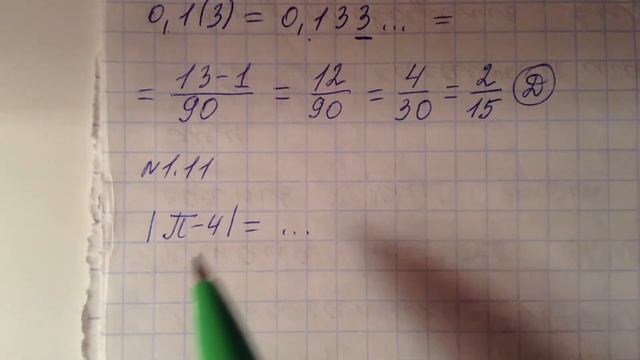 0,1(3) = 0,133... =
= 13-1/90 = 12/90 = 4/30 = 2/15 Д
№1.11
|π-4| = ...